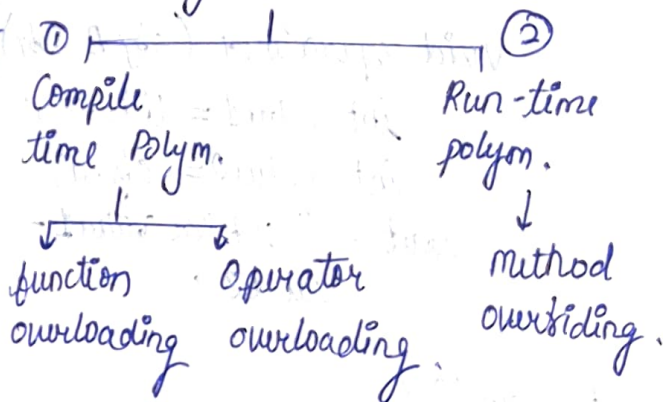 ① ②
Compile
time Polym.
Run-time
polym.
function
overloading
Operator
overloading.
method
overriding.